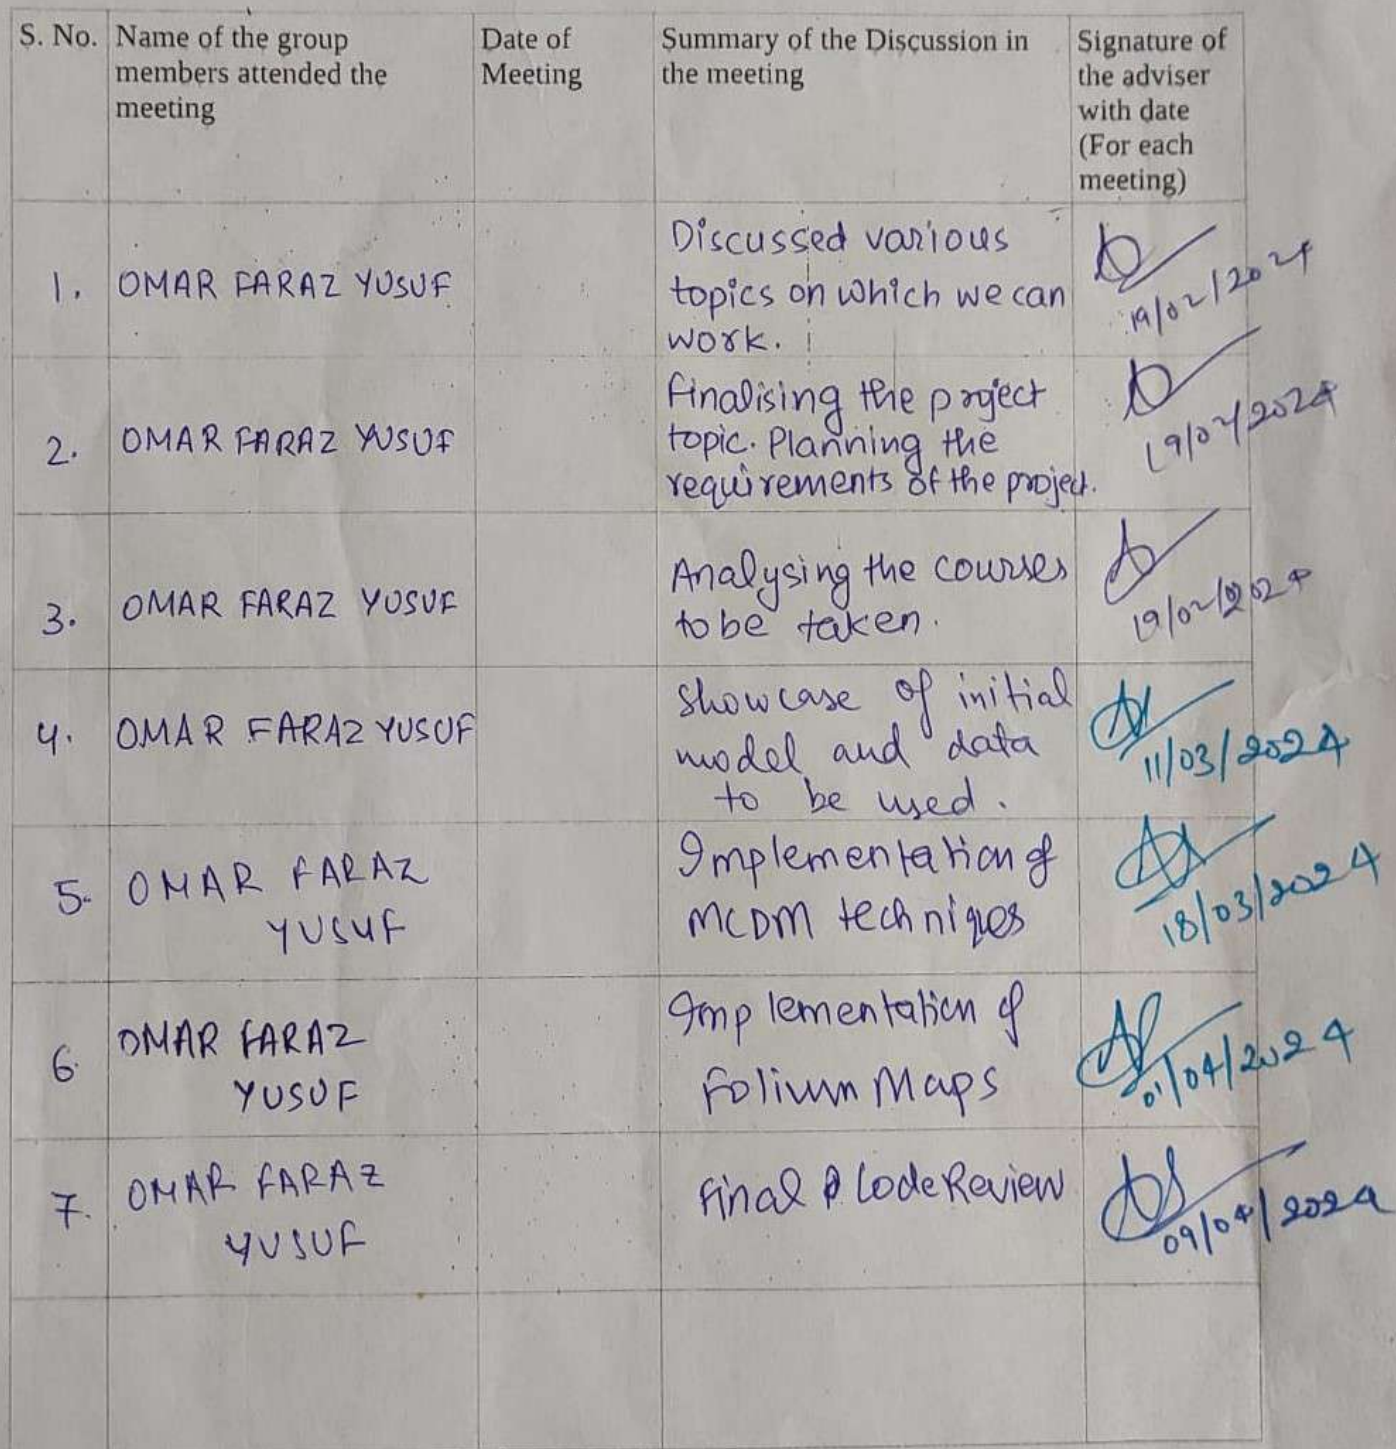 S. No.
Name of the group
members attended the
meeting
Date of
Meeting
Summary of the Discussion in
the meeting
Signature of
the adviser
with date
(For each
meeting)
1.
OMAR FARAZ YUSUF
Discussed various
topics on which we can
work.
19/02/2024
2.
OMAR FARAZ YUSUF
Finalising the project
topic. Planning the
requirements of the project.
19/02/2024
3.
OMAR FARAZ YUSUF
Analysing the courses
to be taken.
19/02/2024
4.
OMAR FARAZ YUSUF
Showcase of initial
model and data
to be used.
11/03/2024
5.
OMAR FARAZ
YUSUF
Implementation of
MCDM techniques
18/03/2024
6.
OMAR FARAZ
YUSUF
Implementation of
Folium Maps
01/04/2024
7.
OMAR FARAZ
YUSUF
Final Code Review
09/04/2024